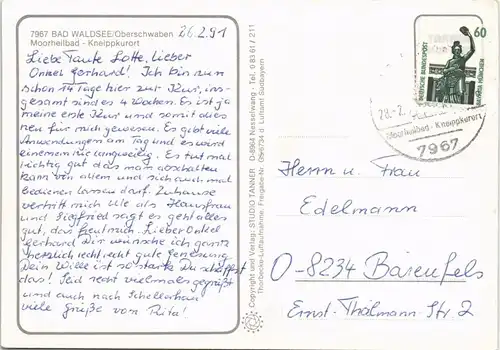 7967 BAD WALDSEE/Oberschwaben
Moorheilbad - Kneippkurort
26.2.91
Liebe Tante Lotte, Lieber
Onkel Gerhard! Ich bin nun
schon 14 Tage hier zur Kur, ins-
gesamt sind es 4 Wochen. Es ist ja
meine erste Kur und somit alles
neu für mich gewesen. Es gibt viele
Anwendungen am Tag und es wird
einem nie langweilig. Es tut mal
richtig gut das man abschalten
kann von allem und sich auch mal
bedienen lassen darf. Zuhause
vertritt mich Ule als Hausfrau
und Siegfried sagt es geht alles
gut, das freut mich. Lieber Onkel
Gerhard Dir wünsche ich ganz
herzlich recht recht gute Genesung
Dein Wille ist so stark Du schaffst
das! Seid recht vielmals gegrüßt
und auch nach Schellerhau
viele Grüße von Rita!
Copyright und Verlag: STUDIO TANNER D-8964 Nesselwang - Tel. 98361/211
Thorbecke-Luftaufnahme, Freigabe-Nr. d. Luftamt Südbayern
DEUTSCHE BUNDESPOST
60
BAVARIA MÜNCHEN
28.-2.
Moorheilbad - Kneippkurort
7967
Herrn u. Frau
Edelmann
O-8234 Bärenfels
Ernst-Thälmann-Str. 2